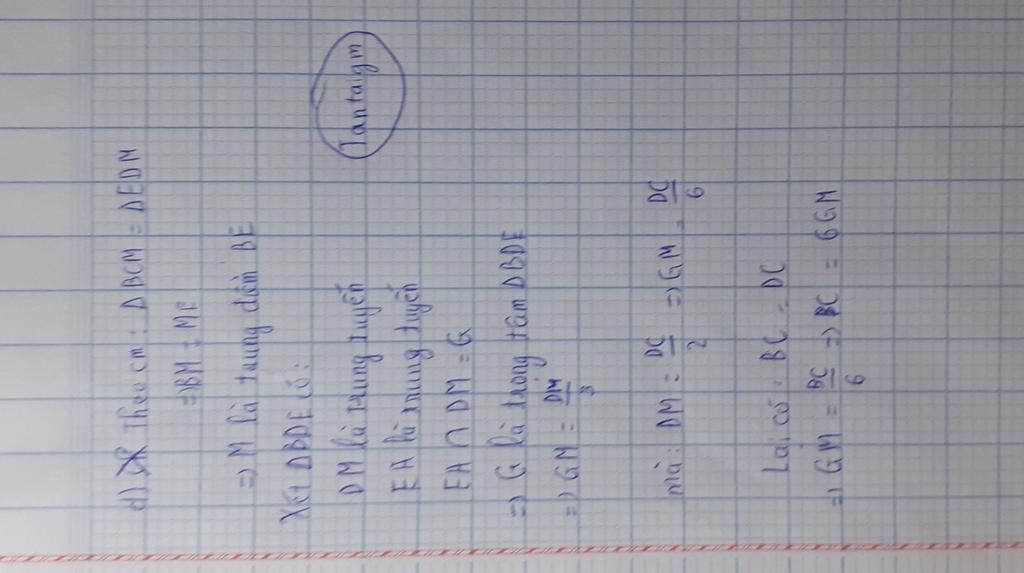 d) Theo cm: ΔBCM = ΔEDM
=> BM = ME
=> M là trung điểm BE
Xét ΔBDE có:
DM là trung tuyến
EA là trung tuyến
EA ∩ DM = G
=> G là trọng tâm ΔBDE
=> GM = DM/3
mà: DM = DC/2 => GM = DC/6
Lại có: BC = DC
=> GM = BC/6 => BC = 6GM
Tantaigm